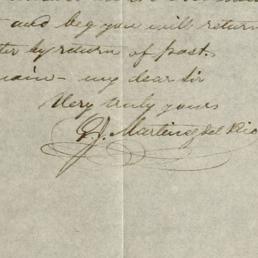 and beg you will return
ter by return of post.
main - my dear Sir
Very truly yours
J. Martinez del Rio